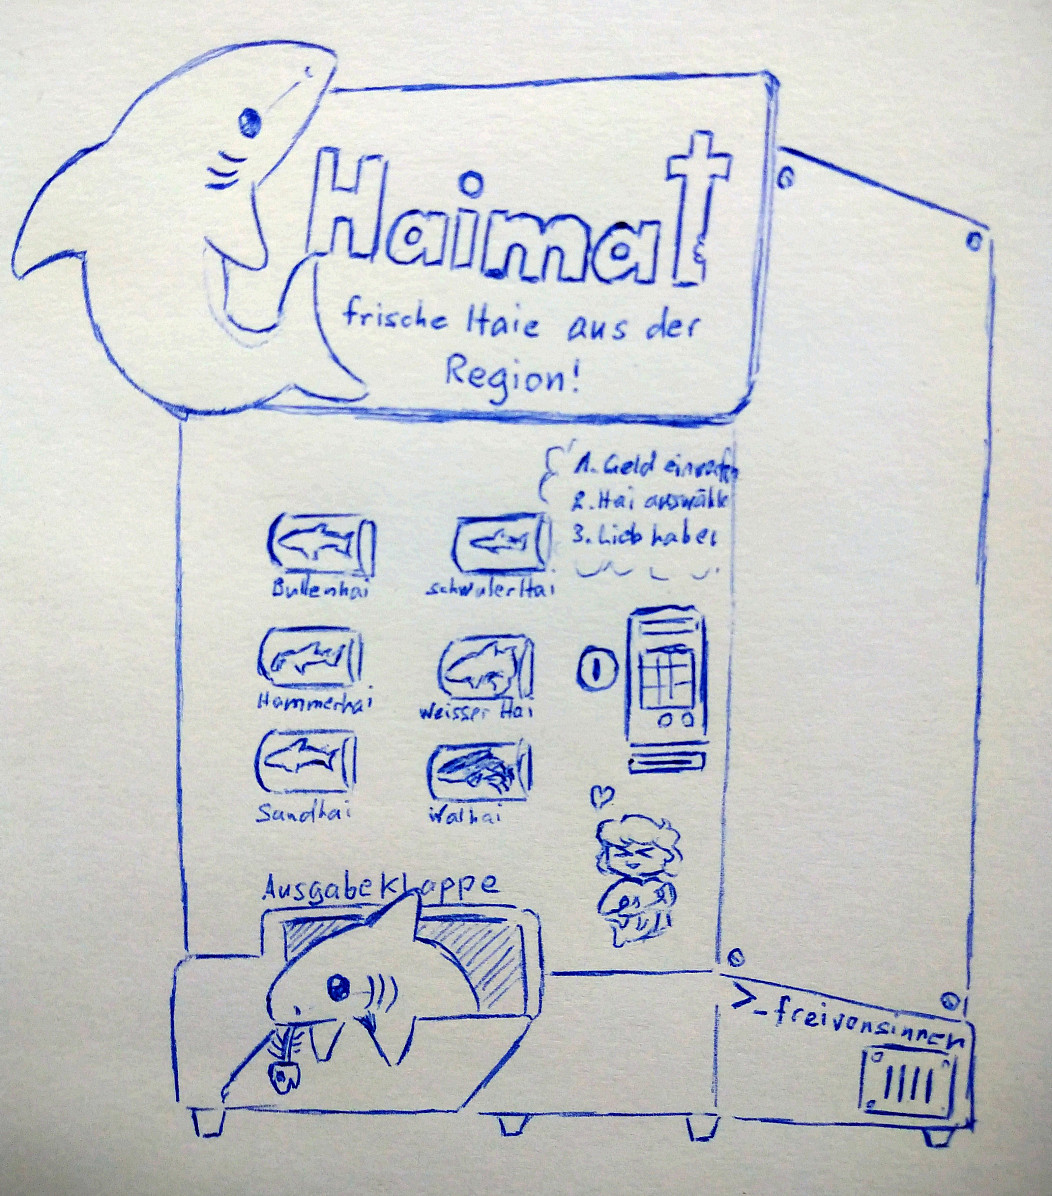 Haimat
frische Haie aus der
Region!
1. Geld einwerfen
2. Hai auswähle
3. Lieb haben
Bullenhai
schwulerHai
Hammerhai
Weisser Hai
Sandhai
Walhai
Ausgabeklappe
>_freivonsinnen